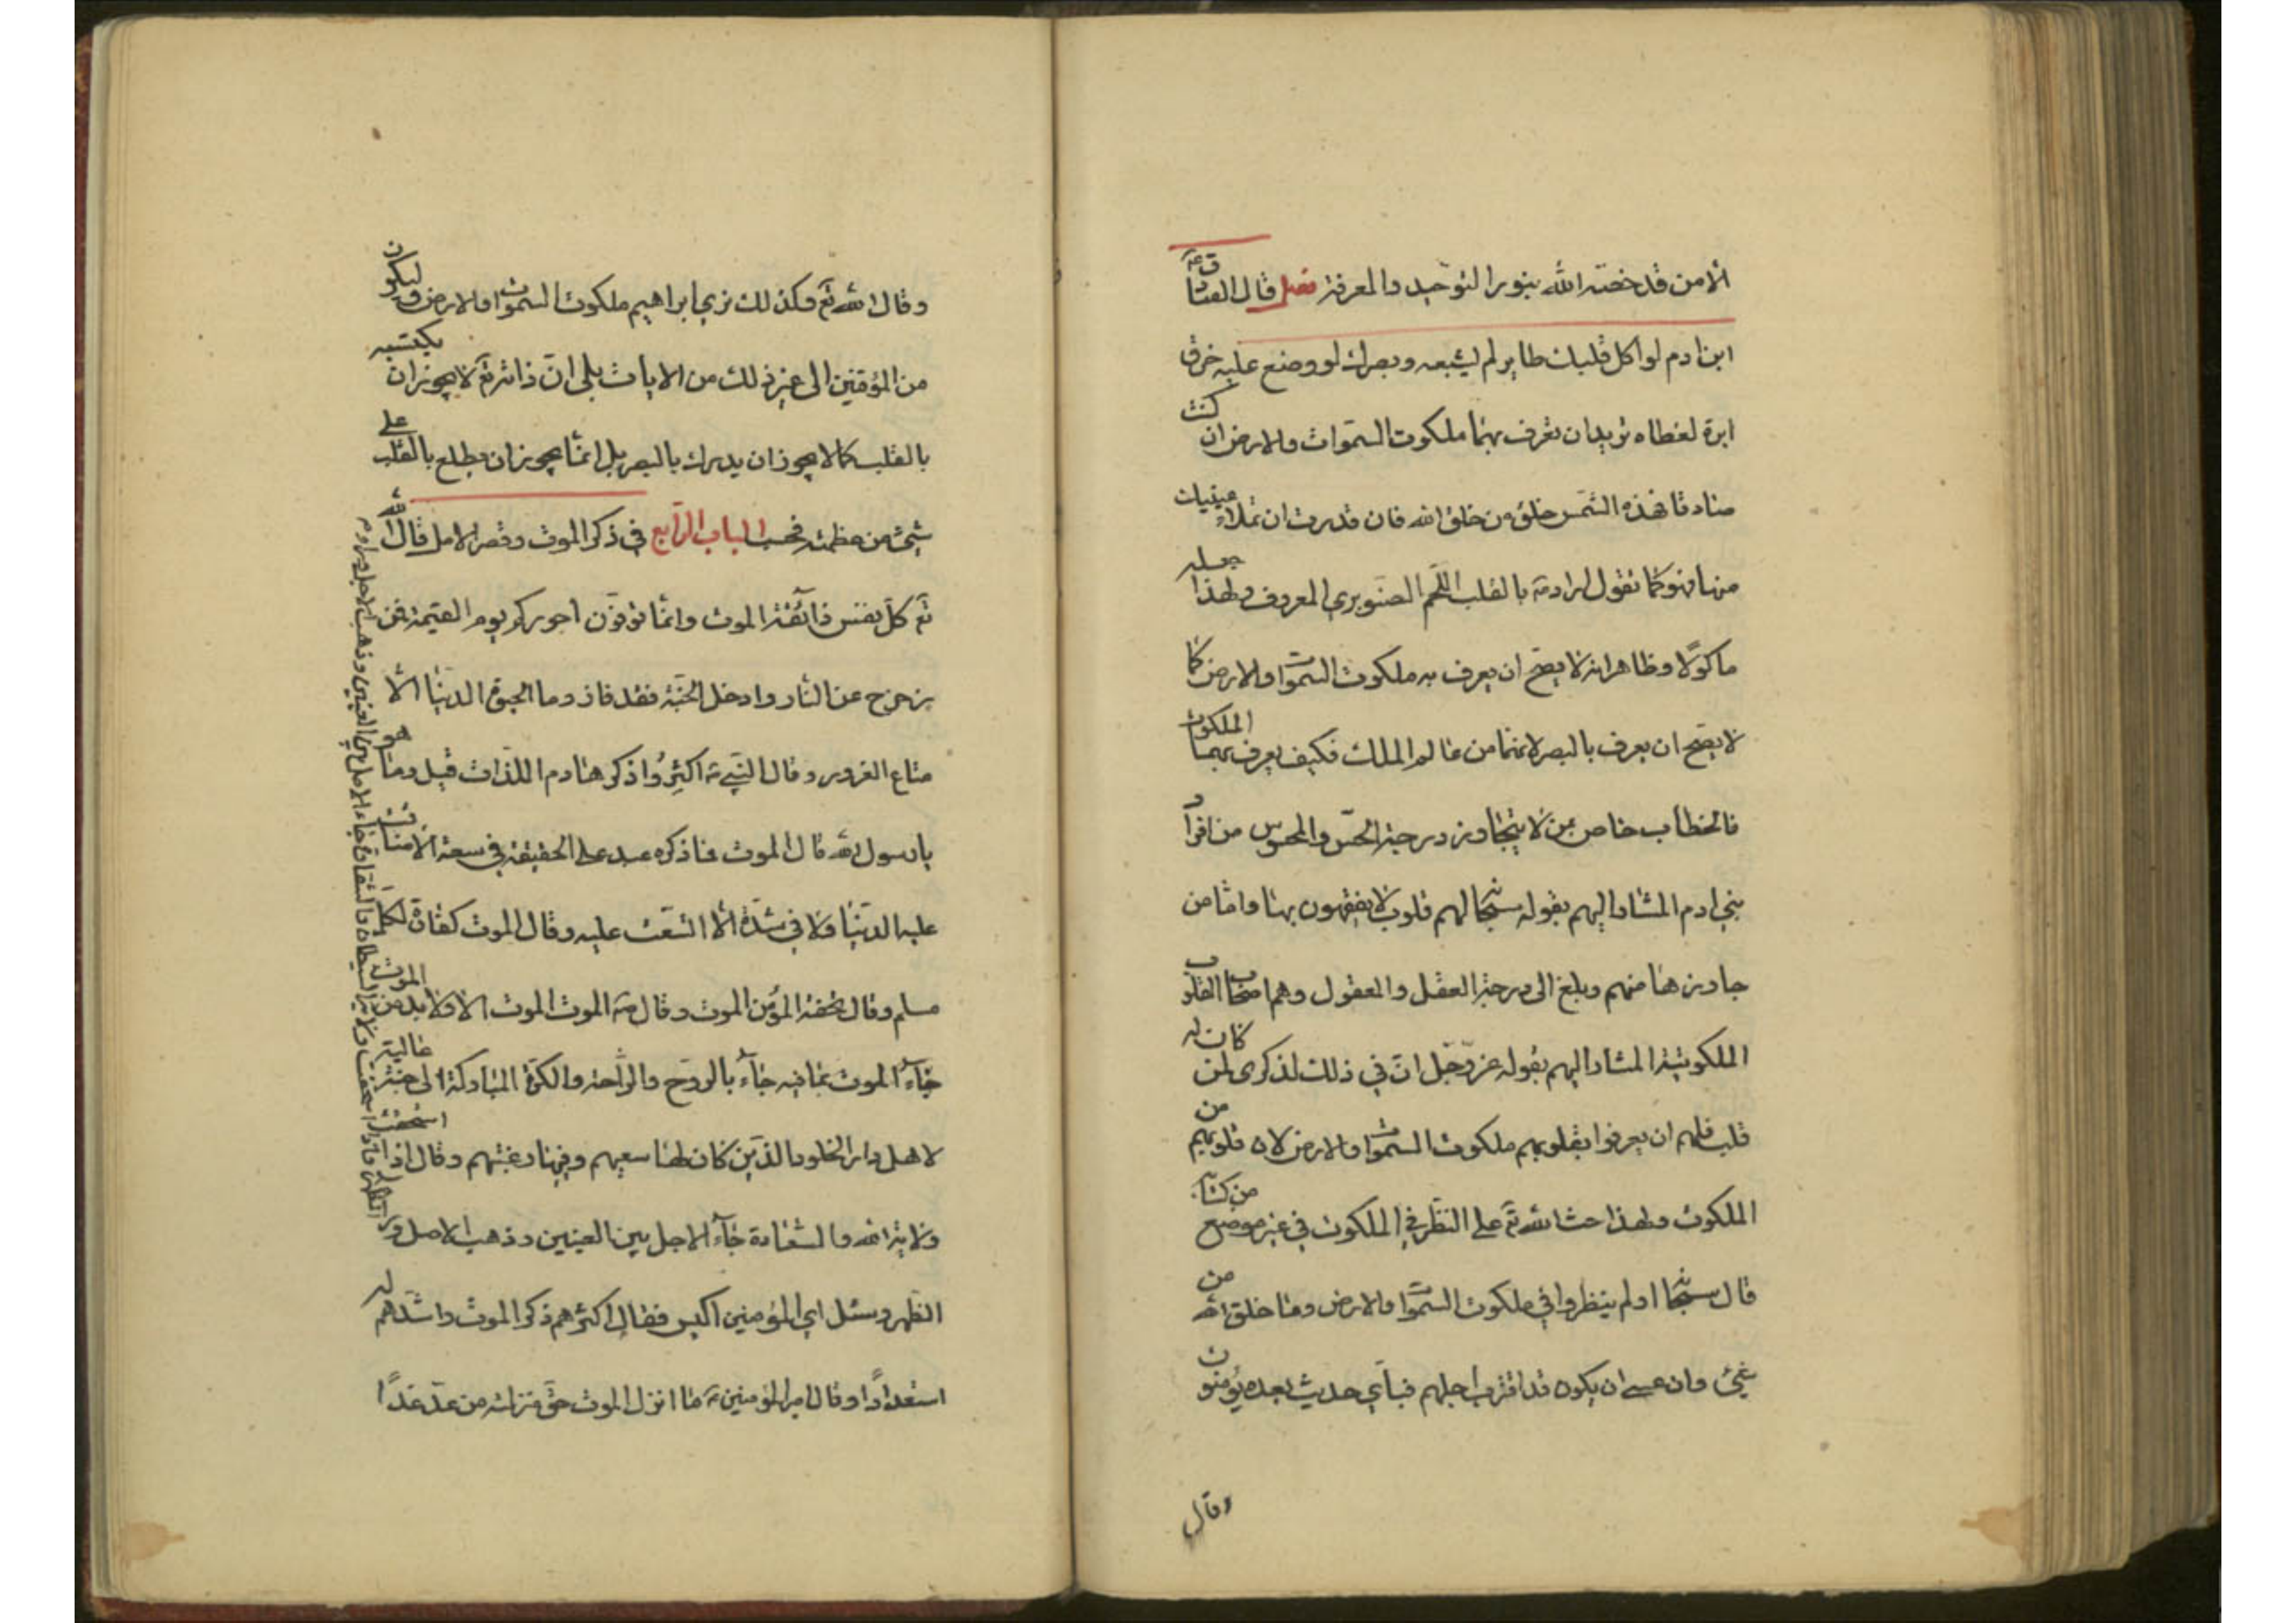 الا من قد خصّه الله بنور التوحيد والمعرفة فصل قال الصادق عه
ابن ادم لو اكل قلبك طاير لم يشبعه وبصرك لو وضع عليه خرق
ابرة لغطاه تريد ان تعرف بهما ملكوت السموات والارض ان كنت
صادقا فهذه الشمس خلق من خلق الله فان قدرت ان تملاء عينيك
منها فهو كما تقول اراد ع بالقلب اللحم الصنوبري المعروف ولهذا جعله
ماكولا وظاهر انه لا يصح ان يعرف به ملكوت السموات والارض كما
لا يصح ان يعرف بالبصر لانهما من عالم الملك فكيف يعرف بهما الملكوت
فالخطاب خاص بمن لا يتجاوز درجة الحسّ والمحسوس من افراد
بني ادم المشار اليهم بقوله سبحانه لهم قلوب لا يفقهون بها واما من
جاوزها منهم وبلغ الى درجة العقل والمعقول وهم اصحاب القلوب
الملكوتية المشار اليهم بقوله عز وجل ان في ذلك لذكرى لمن كان له
قلب فلهم ان يعرفوا بقلوبهم ملكوت السموات والارض لان قلوبهم من
الملكوت ولهذا حث الله تع على النظر في الملكوت في غير موضع من كتابه
قال سبحانه اولم ينظروا في ملكوت السموات والارض وما خلق الله من
شيئ وان عسى ان يكون قد اقترب اجلهم فباي حديث بعده يؤمنون
وقال
وقال الله تع وكذلك نري ابراهيم ملكوت السموات والارض وليكون
من المؤقنين الى غير ذلك من الايات بلى ان ذاته تع لا يجوز ان يكتنه
بالقلب كما لا يجوز ان يدرك بالبصر بل انما يجوز ان يطلع بالقلب على
شيئ من عظمته فحسب الباب الرابع في ذكر الموت وقصر الامل قال الله
تع كل نفس ذائقة الموت وانما توفون اجوركم يوم القيمة فمن
زحزح عن النار وادخل الجنة فقد فاز وما الحيوة الدنيا الا
متاع الغرور وقال النبي ع اكثروا ذكر هادم اللذات قيل وما هو
يا رسول الله قال الموت فما ذكره عبد على الحقيقة في سعة الا ضاقت
عليه الدنيا ولا في شدة الا اتسعت عليه وقال الموت كفارة لكل
مسلم وقال تحفة المؤمن الموت وقال ع الموت الموت الا ولا بد من الموت
جاء الموت بما فيه جاء بالروح والراحة والكرة المباركة الى جنة عالية
لاهل دار الخلود الذين كان لها سعيهم وفيها رغبتهم وقال اذا استحقت
ولاية الله والسعادة جاء الاجل بين العينين وذهب الامل وراء
الظهر وسئل اي المؤمنين اكيس فقال اكثرهم ذكرا للموت واشدهم له
استعدادا وقال امير المؤمنين ع ما انزل الموت حق منزلته من عدّ غدا
اذا استحقت ولاية الشيطان والشقاوة جاء الامل بين العينين وذهب الاجل وراء الظهر